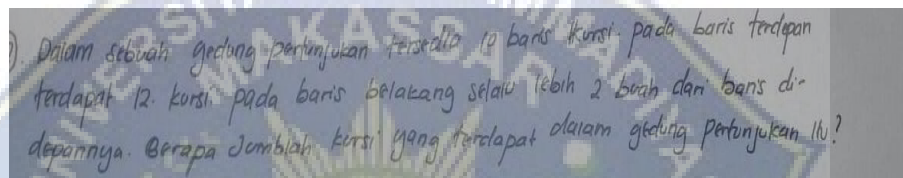 Dalam sebuah gedung pertunjukan tersedia 10 baris kursi. pada baris terdepan
terdapat 12. kursi. pada baris belakang selalu lebih 2 buah dari baris di-
depannya. Berapa Jumblah kursi yang terdapat dalam gedung pertunjukan itu?